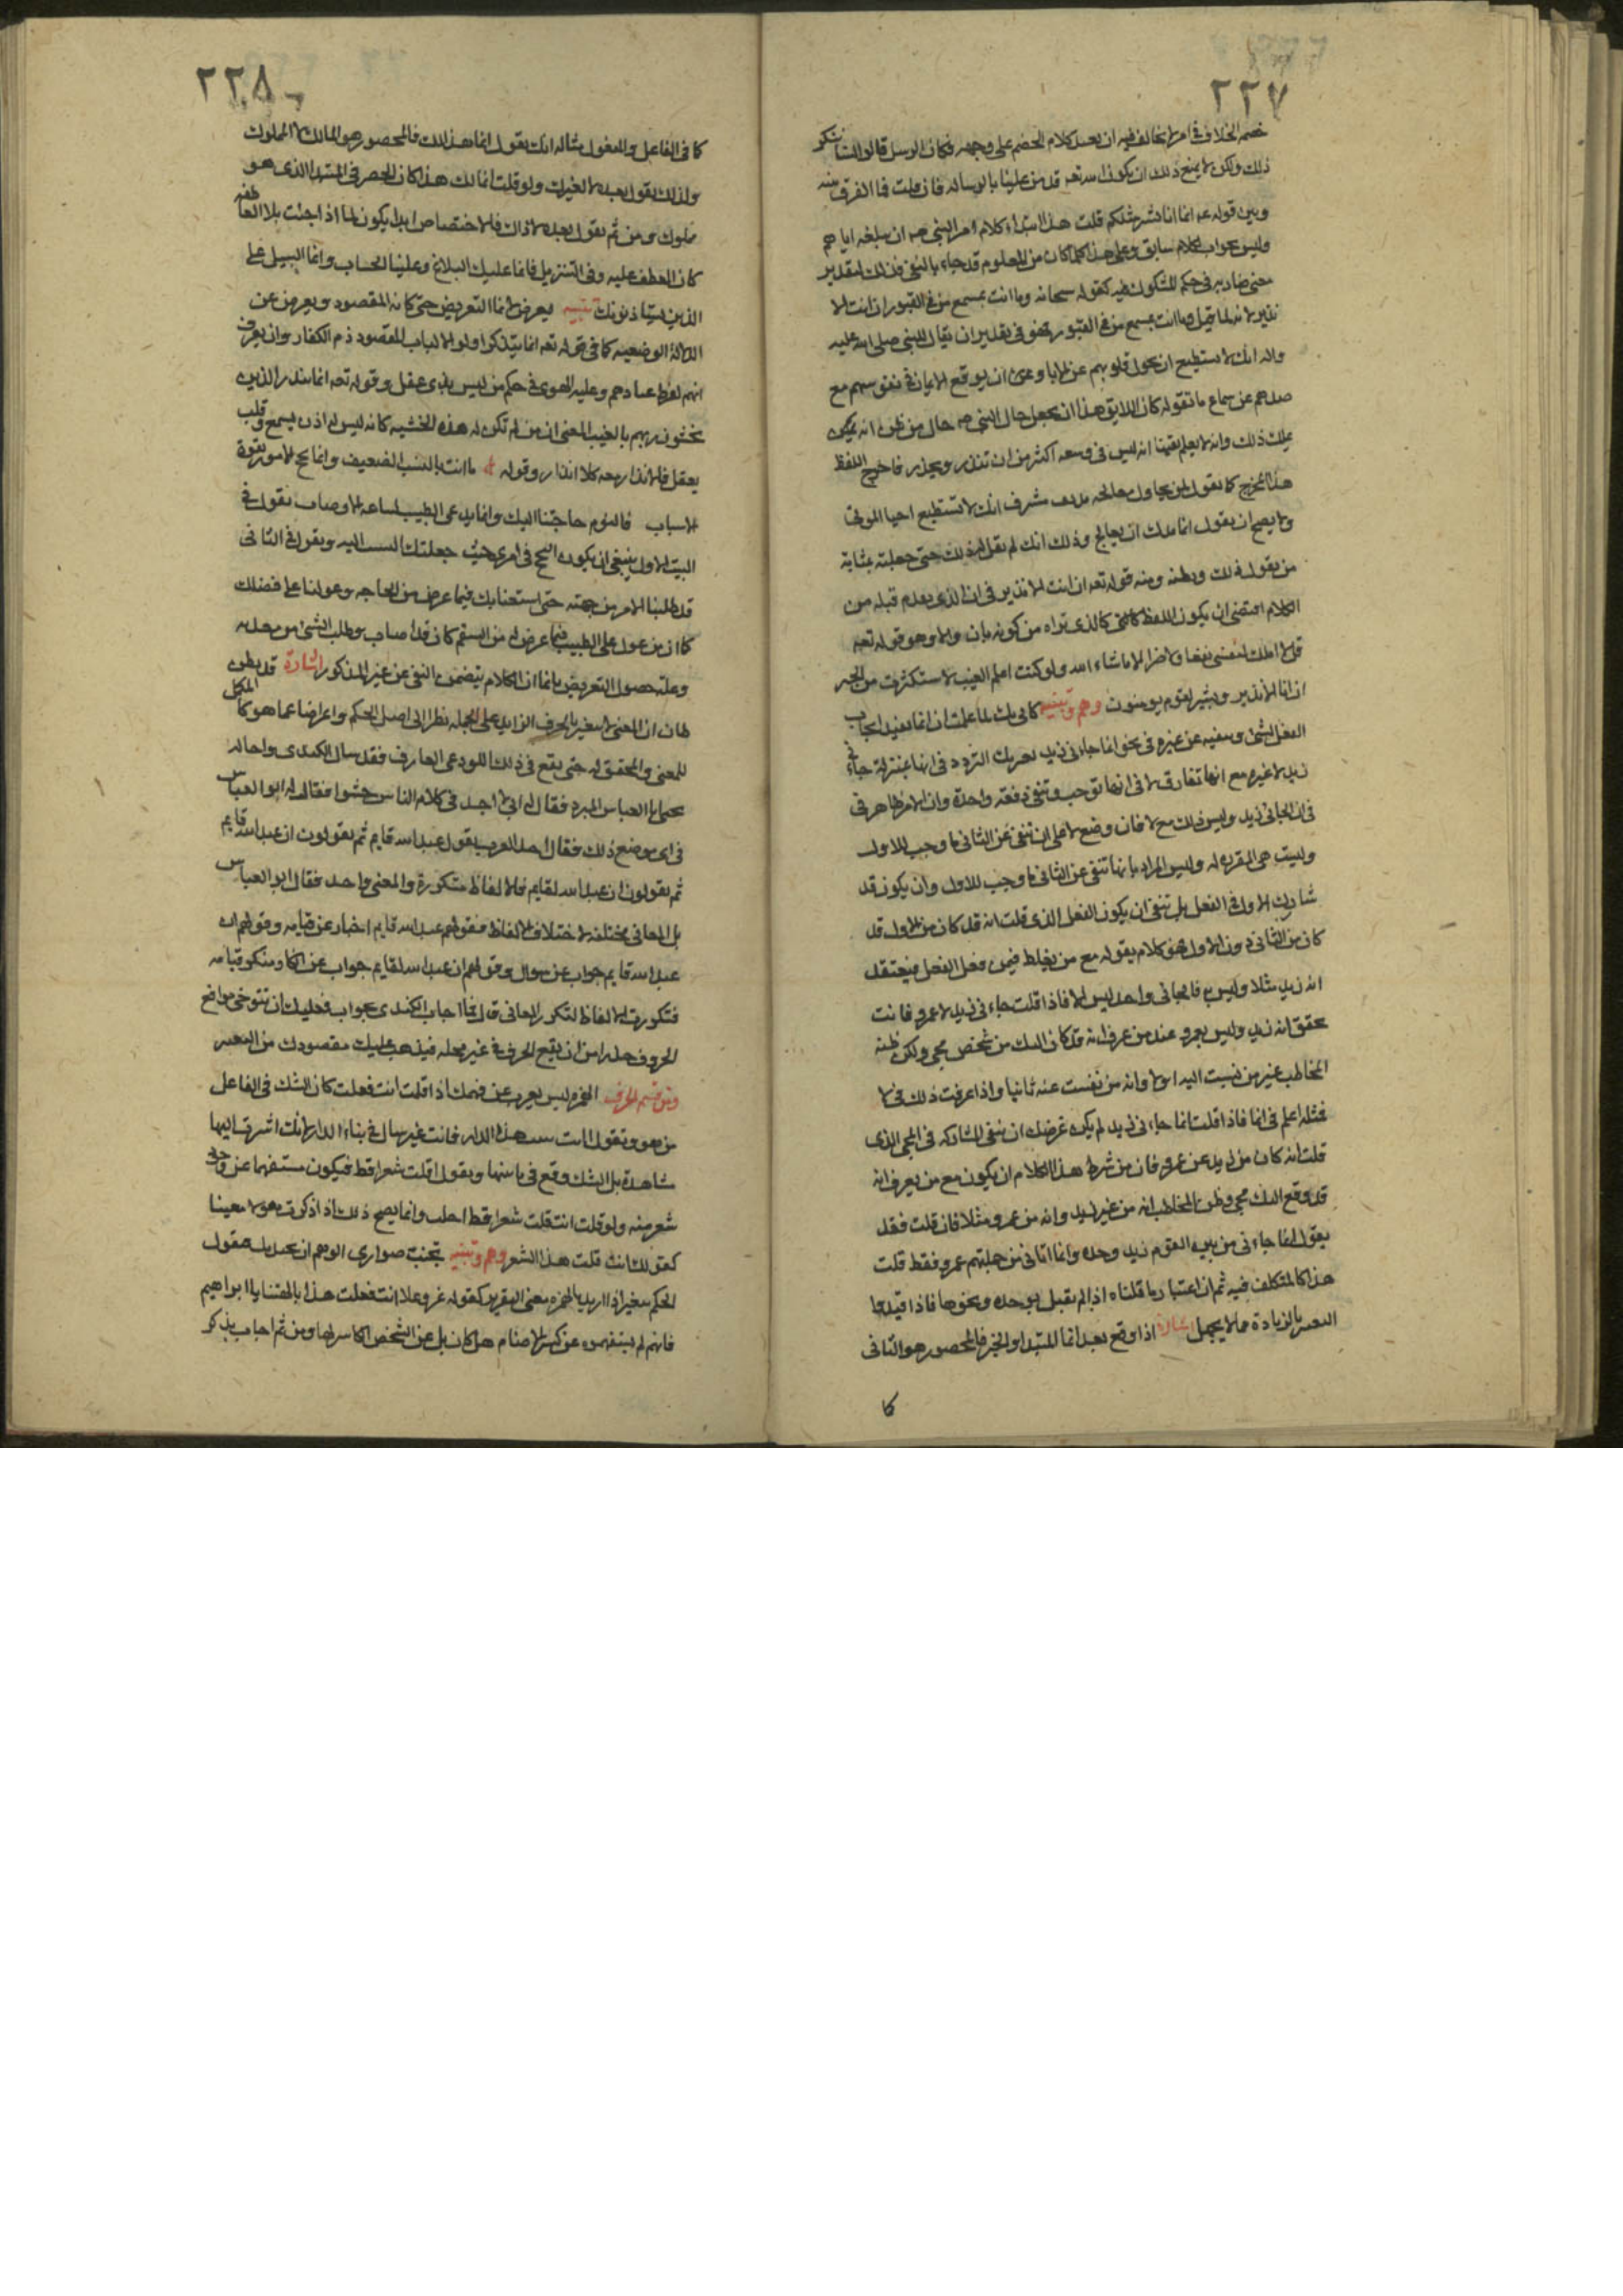 ٢٢٧
خصمه الخلاف في امر لا يخالف فيه ان يعيد كلام الخصم على وجهه فكان الرسل قالوا لسنا ننكر
ذلك ولكن لا يمنع ذلك ان يكون الله تعه قد من علينا بالرساله فان قلت فما الفرق بينه
وبين قوله عه انما انا بشر مثلكم قلت هذا ابتداء كلام امر النبي صه ان يبلغه اياهم
وليس جواب لكلام سابق وعلى هذا كلما كان من المعلوم قد جاء بالنفي فذلك لتقدير
معنى صار به في حكم المشكوك فيه كقوله سبحانه وما انت بمسمع من في القبور ان انت الا
نذير لانه لما قيل وما انت بمسمع من في القبور فهو في تقدير ان يقال للنبي صلى الله عليه
واله انك لا تستطيع ان تحول قلوبهم عن الاباء وعن ان يوقع الايمان في نفوسهم مع
صدهم عن سماع ما تقوله كان اللايق هذا ان يجعل حال النبي صه حال من ظن انه يمكن
يملك ذلك وانه لا يعلم يقينا انه ليس في وسعه اكثر من ان تنذر ويحذر فاخرج اللفظ
هذا المخرج كما تقول لمن يحاول معالجه مدنف مشرف انك لا تستطيع احيا الموتى
ولا يصح ان يقول انما عليك ان يعالج وذلك انك لم تقل له ذلك حتى جعلته بمثابة
من يقول ذلك ويظنه ومنه قوله تعه ان انت الا نذير في ان الذي تقدم قبله من
الكلام اقتضى ان يكون اللفظ كالشي كالذي تراه من كونه بان والا وهو قوله تعه
قل لا املك لنفسي نفعا ولا ضرا الا ما شاء الله ولو كنت اعلم الغيب لاستكثرت من الخير
ان انا الا نذير وبشير لقوم يومنون وهم وتنبيه كاني بك لما علمت ان انما تفيد ايجاب
الفعل لشئ ونفيه عن غيره في نحو انما جاءني زيد تحريك التردد في انها بمنزلة جاءني
زيد لا غيره مع انها تفارق لا في انها توجب وتنفي دفعة واحدة وان الامر ظاهر في
في ان الجاني زيد وليس ذلك مع لا فان وضع لا على ان تنفي عن الثاني ما وجب للاول
وليست هي المفرده له وليس المراد بانها تنفي عن الثاني ما وجب للاول وان يكون قد
شارك الاول في الفعل بل تنفي ان يكون الفعل الذي قلت انه قد كان من الاول قد
كان من الثاني دون الاول فهو كلام يقوله مع من يغلط فيمن فعل الفعل فيعتقد
انه زيد مثلا وليس به فالجاني واحد ليس الا فاذا قلت جاءني زيد لا عمرو فانت
تحقق انه زيد وليس بعمرو عند من عرف انه قد كان اليك من شخص مجي ولكن ظنه
المخاطب غير من نسبت اليه اولا وانه من نفيت عنه ثانيا واذا عرفت ذلك في لا
فمثله اعلم في انما فاذا قلت انما جاءني زيد لم يكن غرضك ان تنفي المشاركه في المجي الذي
قلت انه كان من زيد عن عمرو فان من شرط هذا الكلام ان يكون مع من يعرف انه
قد وقع اليك مجي وظن المخاطب انه من غير زيد وانه من عمرو مثلا فان قلت فقد
يقول انما جاءني من بين القوم زيد وحده وانما اتاني من جملتهم عمرو فقط قلت
هذا كالمتكلف فيه ثم ان اعتبار ما قلناه اذا لم يقبل بوحده ونحوها فاذا قيدوا
التعبير بالزيادة مما لا يجهل اشارة اذا وقع بعد انما المبتدا والخبر فالمحصور هو الثاني
كا
٢٢٨
كما في الفاعل والمفعول مثاله انك تقول انما هذا لك فالمحصور هو المالك لا المملوك
ولذلك يقول بعده لا لغيرك ولو قلت انما لك هذا كان الحصر في المبتدا الذي هو
مملوك ومن ثم تقول بعده لا ذاك فالاختصاص ابدا يكون لما اذا جئت بلا العاطفه
كان العطف عليه وفي التنزيل فانما عليك البلاغ وعلينا الحساب وانما السبيل على
الذين يستاذنونك تنبيه يعرض لانما التعريض حتى كانه المقصود ويعرض عن
الدلالة الوضعيه كما في قوله تعه انما يتذكر اولو الالباب المقصود ذم الكفار وان يعرف
انهم لفرط عنادهم وغلبه الهوى في حكم من ليس بذي عقل وقوله تعه انما تنذر الذين
يخشون ربهم بالغيب المعنى ان من لم تكن له هذه الخشيه كانه ليس له اذن يسمع وقلب
يعقل فالانذار معه كلا انذار وقوله ما انت بالسبب الضعيف وانما نجح الامور بقوة
الاسباب فاليوم حاجتنا اليك وانما يدعى الطبيب لساعه الاوصاب تقول في
البيت الاول ينبغي ان يكون النجح في امري حيث جعلتك السبب اليه ويقول في الثاني
قد طلبنا الامر من جهته حتى استعنا بك فيما عرض من الحاجه وعولنا على فضلك
كما ان من عول على الطبيب فيما عرض له من السقم كان قد اصاب وطلب الشي من معدنه
وعلة حصول التعريض بانما ان الكلام يتضمن النفي عن غير المذكور اشارة قد يظن
ظان ان المعنى لا يتغير بالحرف الزايد على الجمله نظرا الى اصل الحكم واعراضا عما هو كالمكمل
للمعنى والمحقق له حتى يقع في ذلك اللوذعي العارف فقد سال الكندي واحاله
يحيى ابا العباس المبرد فقال له اني لا اجد في كلام الناس حشوا فقال له ابو العباس
في اي موضع ذلك فقال اجد العرب يقول عبد الله قايم ثم يقولون ان عبد الله قايم
ثم يقولون ان عبد الله لقايم فالالفاظ متكررة والمعنى واحد فقال ابو العباس
بل المعاني مختلفه لاختلاف الالفاظ فقولهم عبد الله قايم اخبار عن قيامه وقولهم ان
عبد الله قايم جواب عن سوال وقولهم ان عبد الله لقايم جواب عن انكار منكر قيامه
فتكررت الالفاظ لتكرر المعاني قال فما احار الكندي بجواب فعليك ان تتوخى مواضع
الحروف حذرا من ان يقع الحرف في غير محله فيذهب عليك مقصودك من التعبير
ومن قسم الحرف الهمزه ليس يعرب عن فهمك اذا قلت اانت فعلت كان الشك في الفاعل
من هو وتقول اانت بنيت هذا الدار فانت غير سال في بناء الدار لانك اشرت اليها
مشاهدة بل الشك وقع في بانيها ويقول اقلت شعرا قط فيكون مستفهما عن وجود
شعر منه ولو قلت اانت قلت شعرا قط احلت وانما يصح ذلك اذا ذكرت مقولا معينا
كقولك اانت قلت هذا الشعر وهم وتنبيه تجنب صواري الوهم ان يميل بك فتقول
الحكم يتغير اذا اريد بالهمزه معنى التقرير كقوله عز وعلا اانت فعلت هذا بالهتنا يا ابراهيم
فانهم لم يستفهموه عن كسر الاصنام هل كان بل عن الشخص الكاسر لها ومن ثم اجاب بذكر